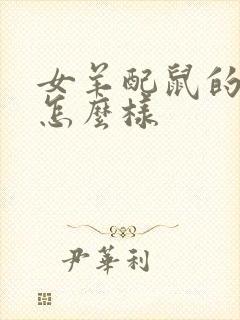 女羊配鼠的
怎麼樣
尹華利